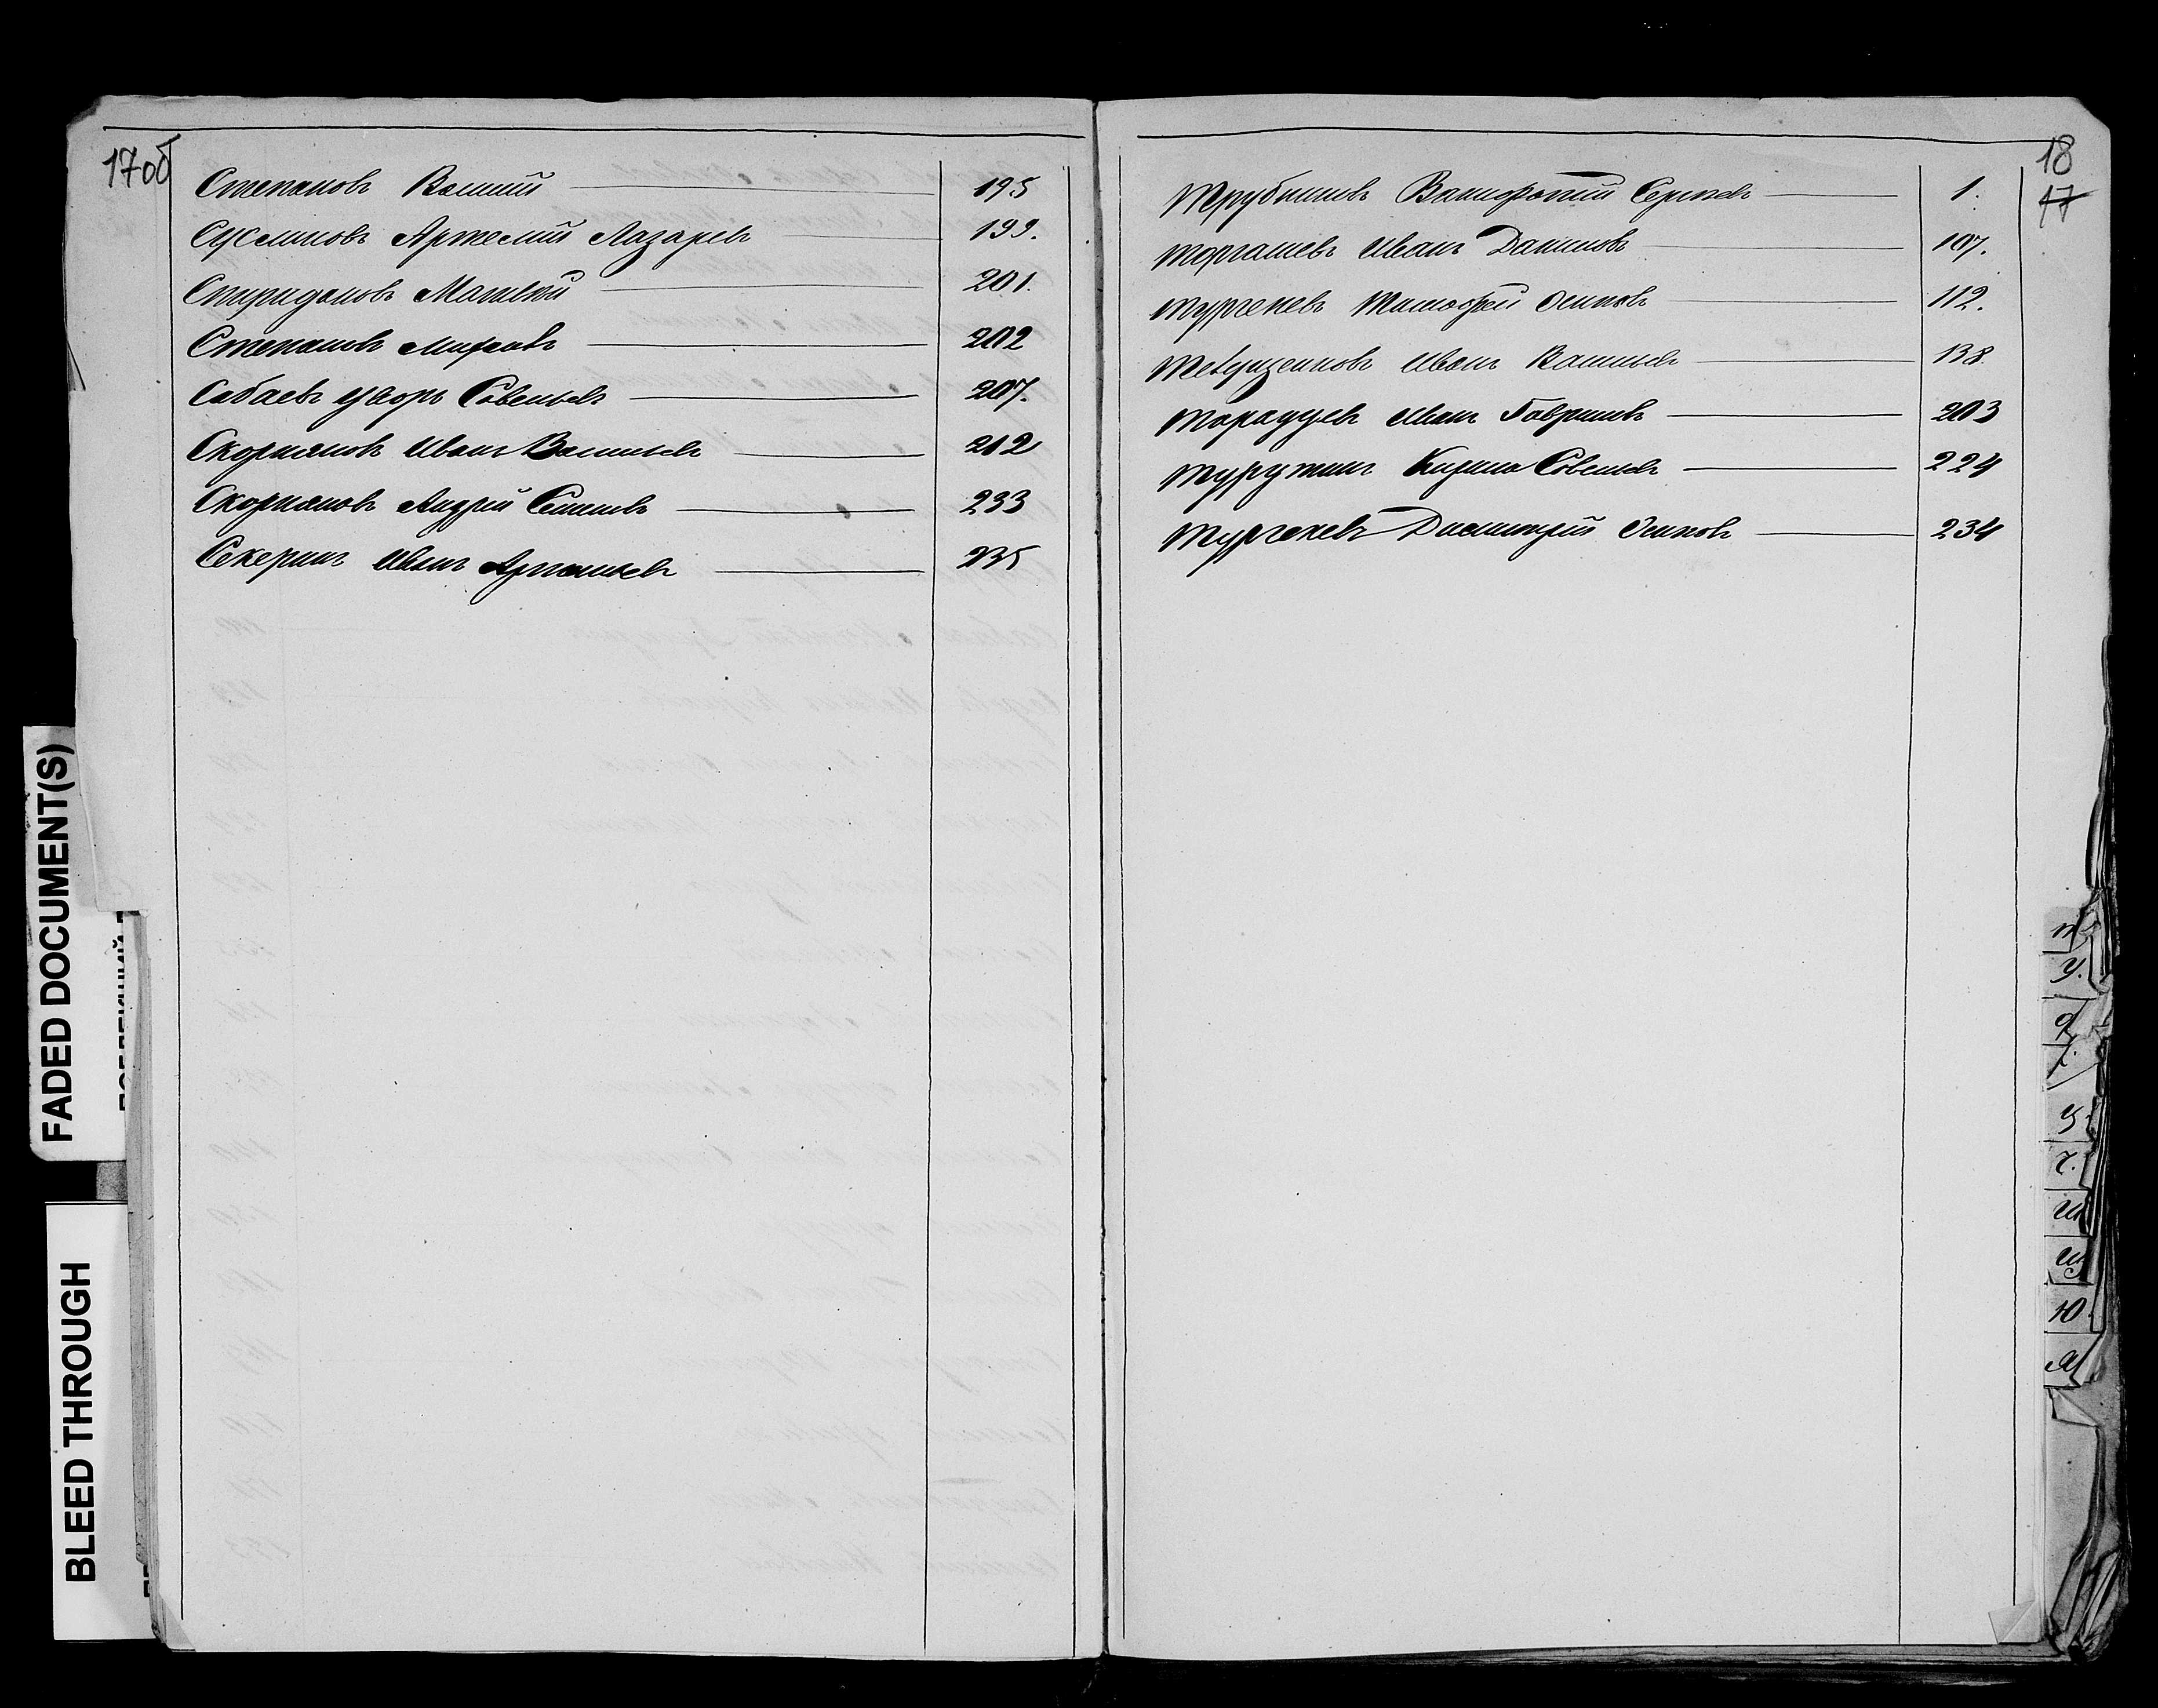 17об
Степановъ Василий 195
Сусликовъ Артемий Лазаревъ 199.
Спиридоновъ Матвѣй 201.
Степановъ Михаилъ 202
Сабаевъ Егоръ Савельевъ 207.
Скорняковъ Иванъ Васильевъ 212
Скорняковъ Андрей Семеновъ 233
Секеринъ Иванъ Артемьевъ 235
18
17
Трубниковъ Сергѣевъ 1.
Торгашевъ Иванъ Даниловъ 107.
Тургеневъ Тимофей Осиповъ 112.
Иванъ Васильевъ 138
Иванъ Гавриловъ 203
Савельевъ 224
Тургеневъ Дмитрій Осиповъ 234
FADED DOCUMENT(S)
BLEED THROUGH
Т
У.
Ф
Х.
Ц
Ч.
Ш
Щ
Ю
Я